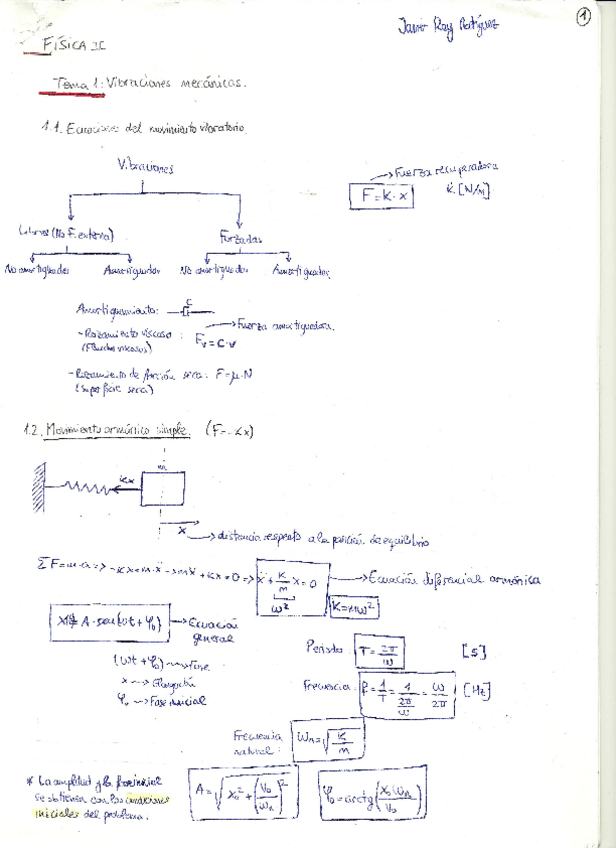 Javier Rey Rodríguez
1
FÍSICA II
Tema 1: Vibraciones mecánicas.
1.1. Ecuaciones del movimiento vibratorio
Vibraciones
Fuerza recuperadora
F = K · x
K [N/m]
Libres (No F. externa)
Forzadas
No amortiguadas
Amortiguadas
No amortiguadas
Amortiguadas
Amortiguamiento: C
- Rozamiento viscoso : Fv = c · v
Fuerza amortiguadora
(Fluidos viscosos)
- Rozamiento de fricción seca: F = μ · N
(Superficie seca)
1.2. Movimiento armónico simple. (F = -Kx)
m
Kx
x
distancia respecto a la posición de equilibrio
ΣF = m·a => -Kx = m·ẍ -> mẍ + Kx = 0 => ẍ + K/m x = 0
Ecuación diferencial armónica
ω²
K = mω²
A · sen(ωt + φ₀)
Ecuación general
(ωt + φ₀) -> Fase
x -> Elongación
φ₀ -> Fase inicial
Periodo: T = 2π/ω [s]
Frecuencia: f = 1/T = 1/(2π/ω) = ω/2π [Hz]
Frecuencia natural: ωn = √(K/m)
* La amplitud y la fase inicial
se obtienen con las condiciones
iniciales del problema.
A = √(x₀² + (v₀/ωn)²)
φ₀ = arctg(x₀ωn/v₀)